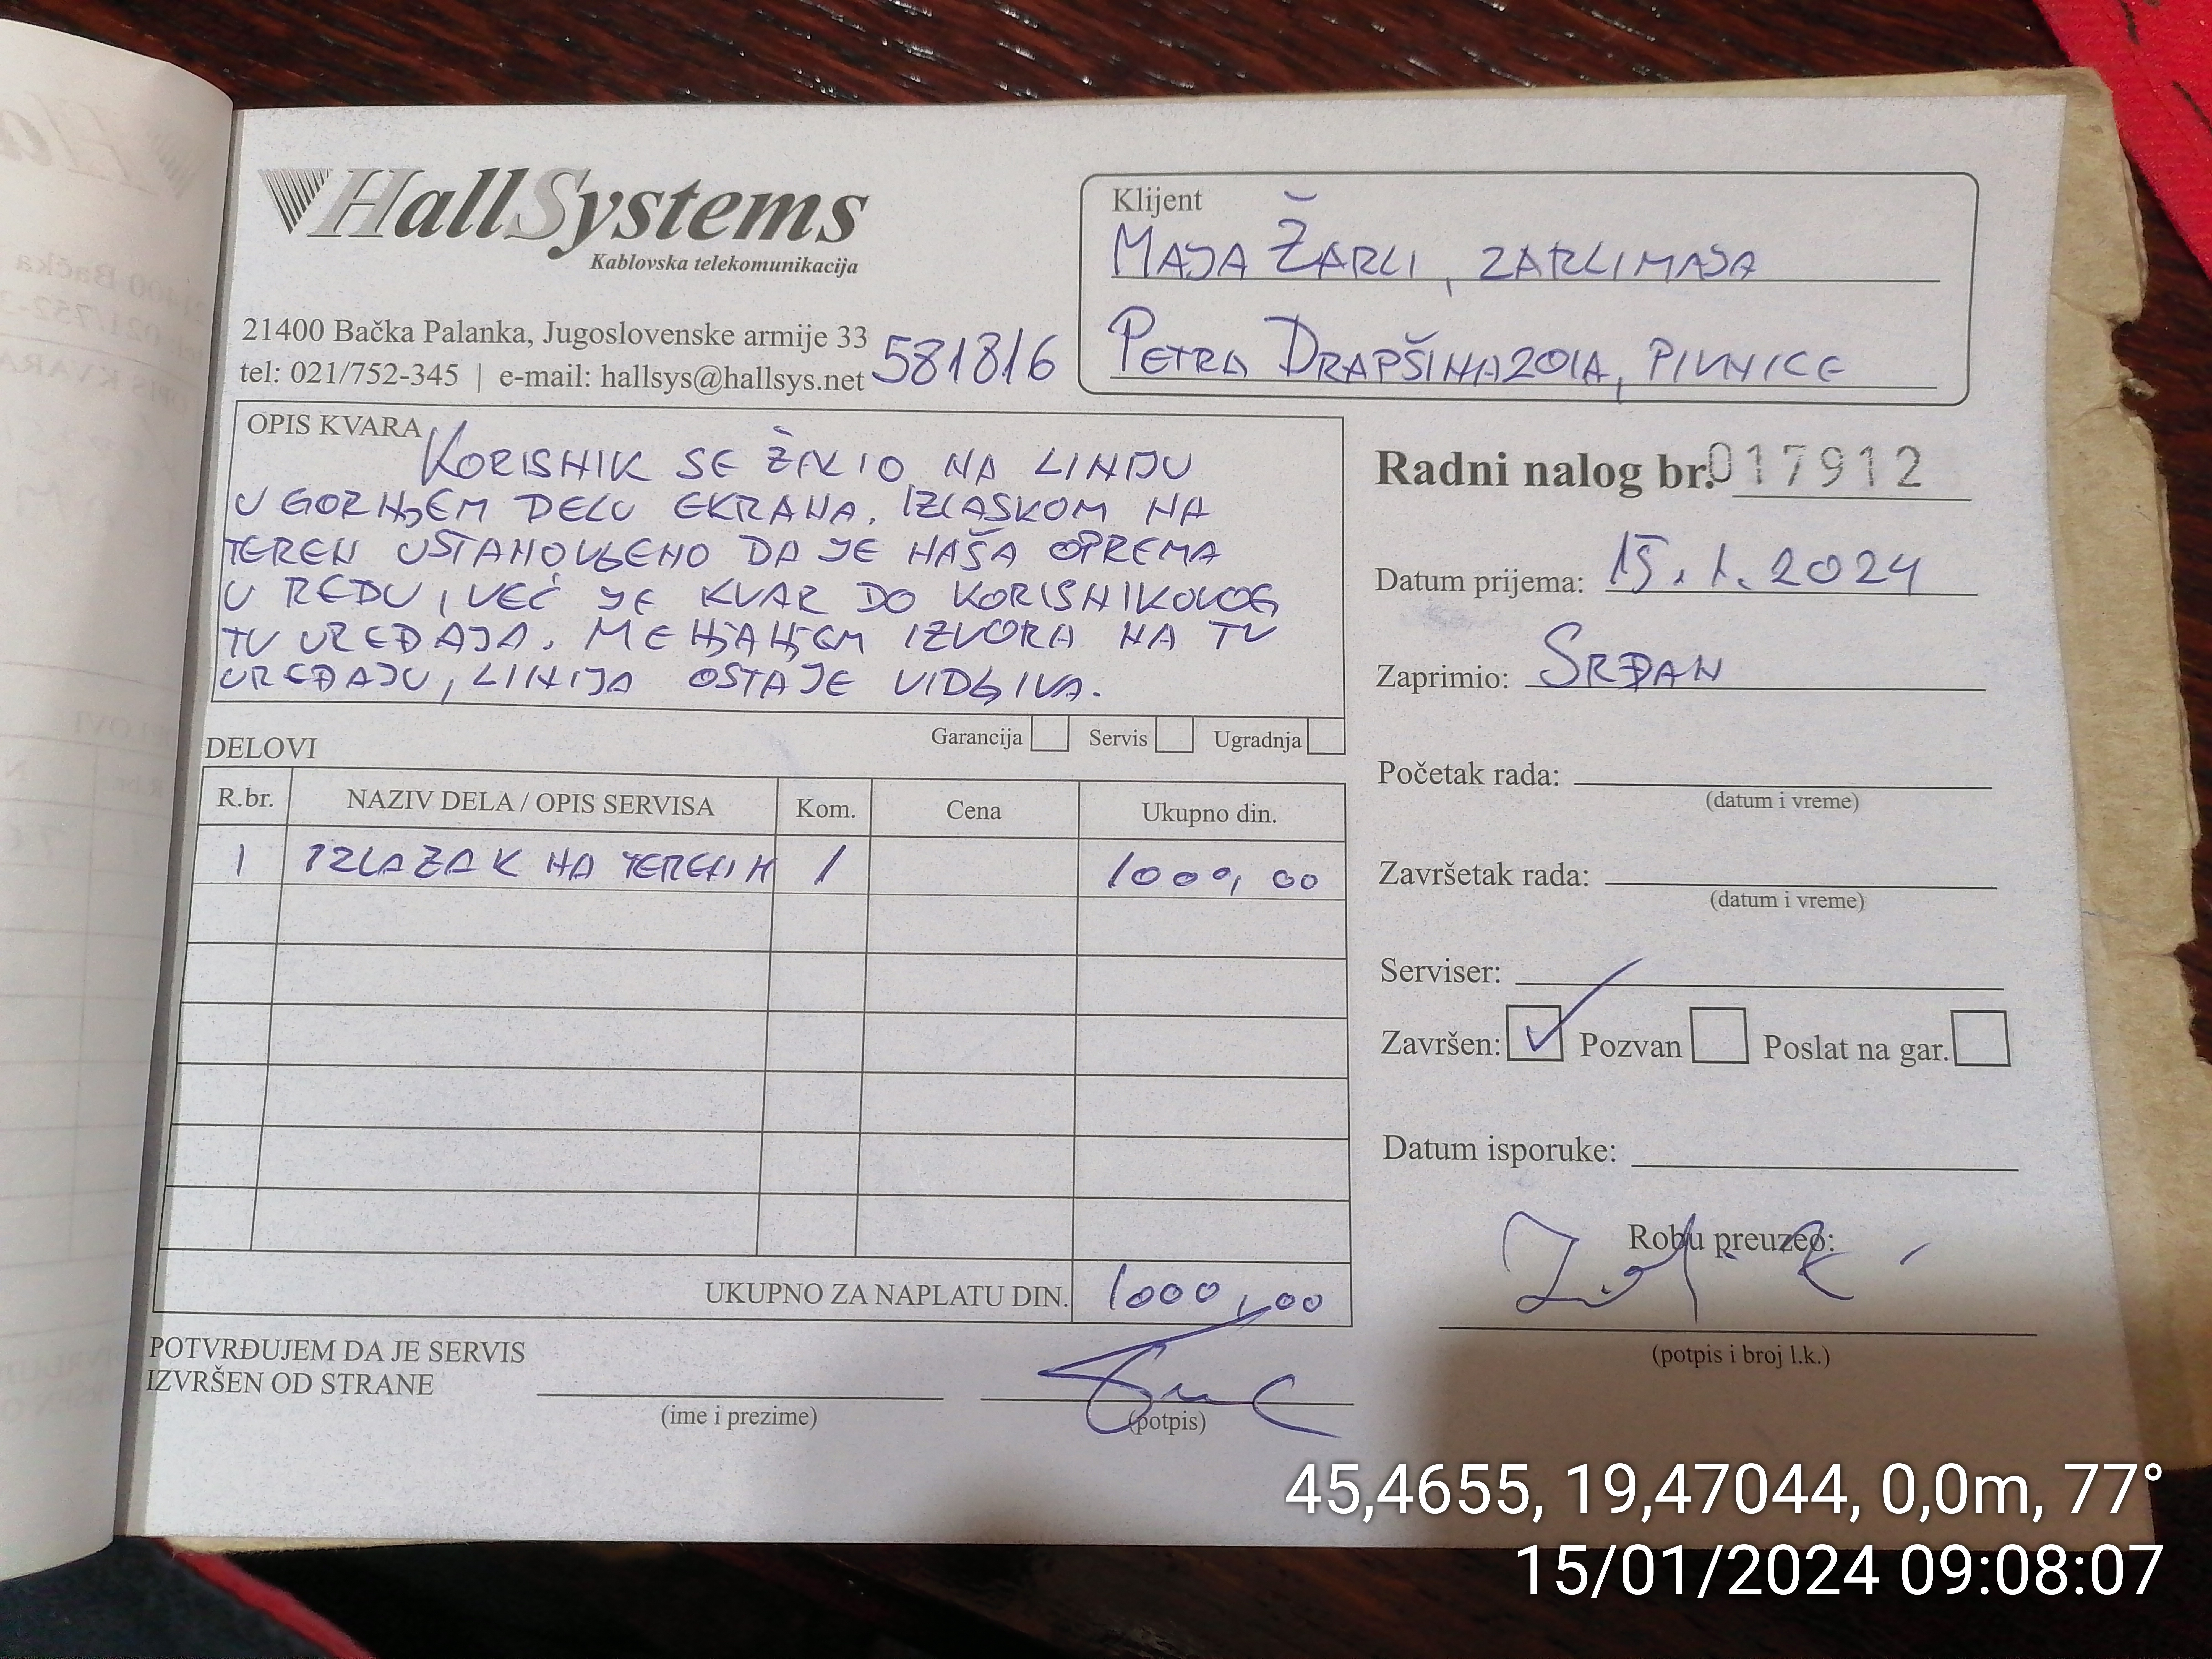 HallSystems
Kablovska telekomunikacija
21400 Bačka Palanka, Jugoslovenske armije 33
tel: 021/752-345 | e-mail: hallsys@hallsys.net
581816
Klijent
MAJA ŽARLI, ZARLIMAJA
PETRA DRAPŠINA 201A, PIVNICE
OPIS KVARA
KORISNIK SE ŽALIO NA LINIJU
U GORNJEM DELU EKRANA. IZLASKOM NA
TEREN USTANOVLJENO DA JE NAŠA OPREMA
U REDU, VEĆ JE KVAR DO KORISNIKOVOG
TV UREĐAJA. MENJANJEM IZVORA NA TV
UREĐAJU, LINIJA OSTAJE VIDLJIVA.
Garancija Servis Ugradnja
Radni nalog br. 017912
Datum prijema: 15.1.2024
Zaprimio: SRĐAN
Početak rada:
(datum i vreme)
Završetak rada:
(datum i vreme)
Serviser:
Završen: Pozvan Poslat na gar.
Datum isporuke:
Robu preuzeo:
(potpis i broj l.k.)
DELOVI
R.br. NAZIV DELA / OPIS SERVISA Kom. Cena Ukupno din.
1 IZLAZAK NA TEREN 1 1000,00
UKUPNO ZA NAPLATU DIN. 1000,00
POTVRĐUJEM DA JE SERVIS
IZVRŠEN OD STRANE
(ime i prezime) (potpis)
45,4655, 19,47044, 0,0m, 77°
15/01/2024 09:08:07